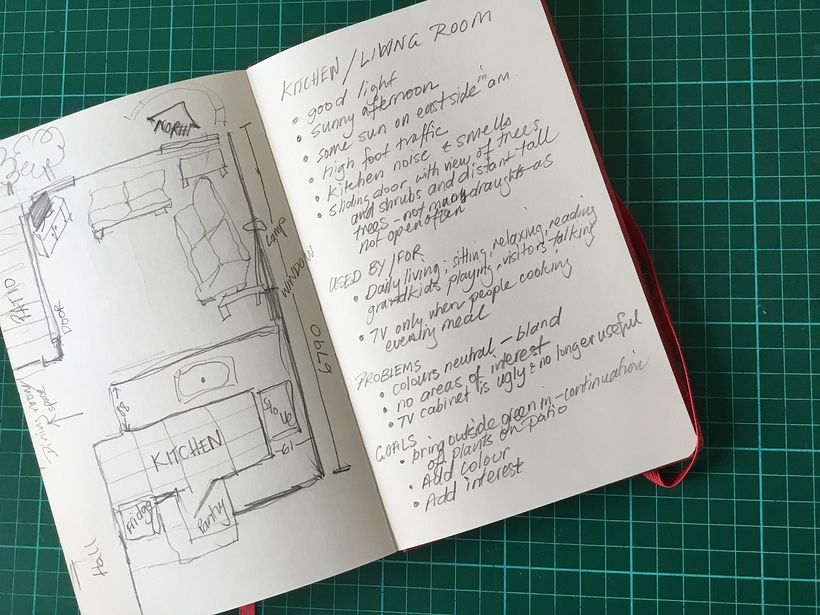 NORTH
Lamp
WINDOW
PATIO
DOOR
6790
Living room
space
KITCHEN
STOVE
Fridge
Pantry
Hall
KITCHEN / LIVING ROOM
• good light
• Sunny afternoon
• some sun on east side in am
• high foot traffic
• kitchen noise & smells
• Sliding door with view of trees
and shrubs and distant tall
trees - not many draughts as
not open often
USED BY / FOR
• Daily living: sitting, relaxing, reading
grandkids playing, visitors talking
• TV only when people cooking
evening meal
PROBLEMS
• colours neutral - bland
• no areas of interest
• TV cabinet is ugly & no longer useful
GOALS
• bring outside green in - continuation
of plants on patio
• Add colour
• Add interest